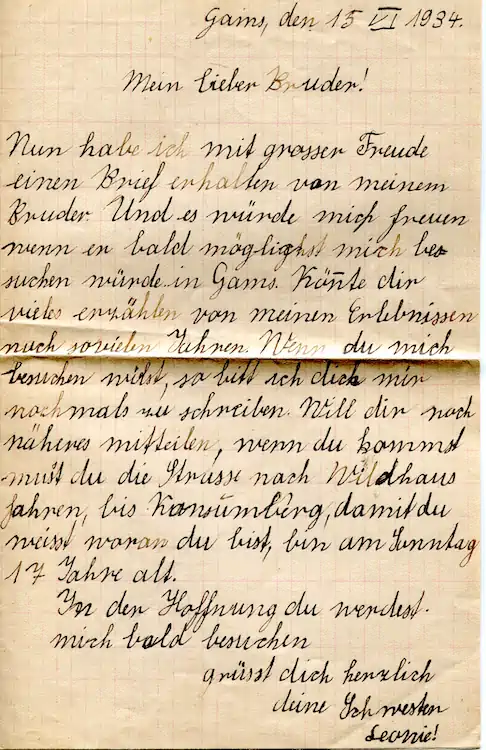 Gams, den 15 VI 1934.
Mein lieber Bruder!
Nun habe ich mit grosser Freude
einen Brief erhalten von meinem
Bruder. Und es würde mich freuen
wenn er bald möglichst mich be-
suchen würde in Gams. Kön̄te dir
vieles erzählen von meinen Erlebnissen
nach sovielen Jahren. Wenn du mich
besuchen wilst, so bitt ich dich mir
nochmals zu schreiben. Will dir noch
näheres mitteilen, wenn du kommst
must du die Strasse nach Wildhaus
fahren, bis Konsumberg, damit du
weisst woran du bist, bin am Sonntag
17 Jahre alt.
In der Hoffnung du werdest
mich bald besuchen
grüsst dich herzlich
deine Schwester
Leonie!